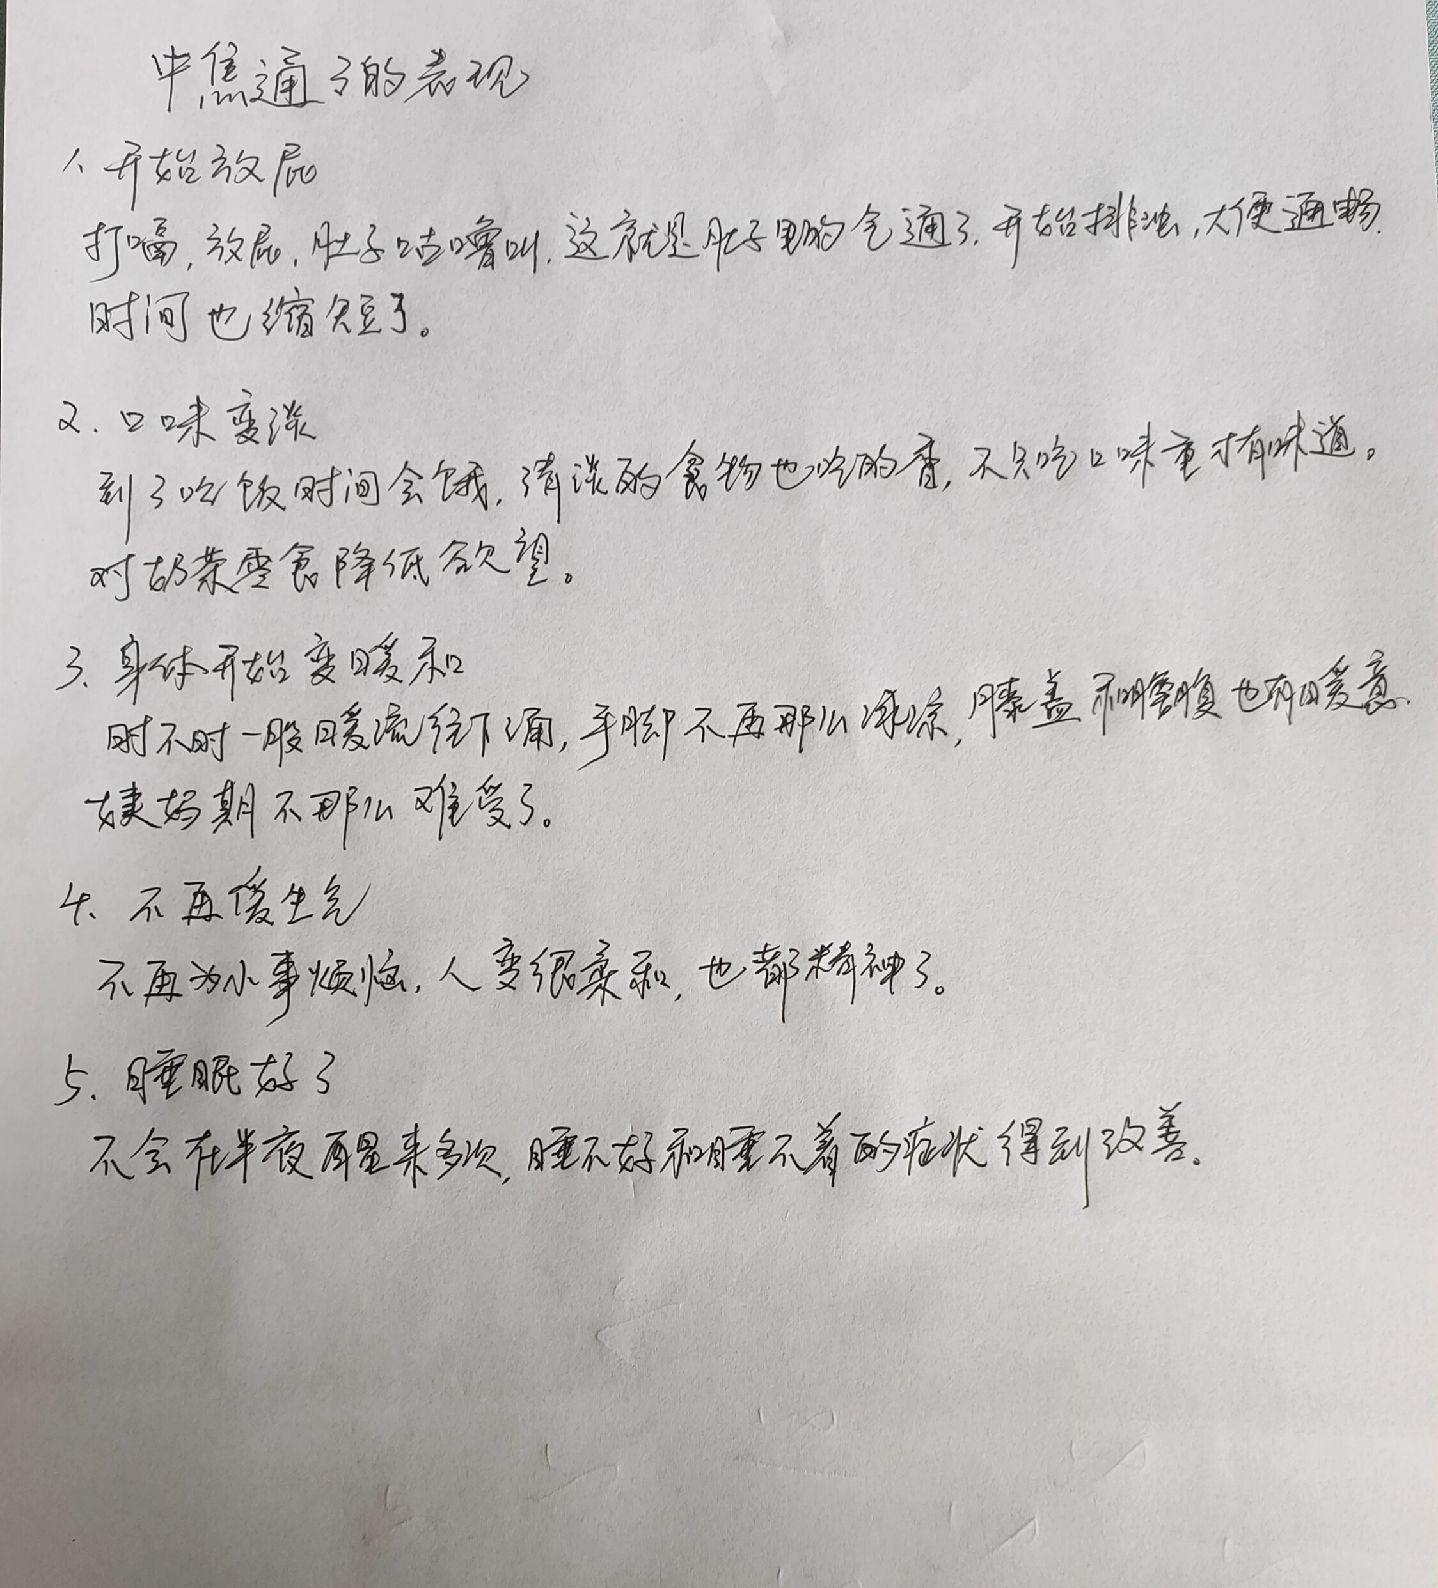 中焦通了的表现
1、开始放屁
打嗝,放屁,肚子咕噜叫,这就是肚子里的气通了.开始排浊,大便通畅.
时间也缩短了。
2.口味变淡
到了吃饭时间会饿,清淡的食物也吃的香,不只吃口味重才有味道。
对奶茶零食降低欲望。
3、身体开始变暖和
时不时一股暖流往下涌,手脚不再那么冰凉,膝盖和腹也有暖意.
姨妈期不那么难受了。
4、不再爱生气
不再为小事烦恼,人变很柔和,也都精神了。
5.睡眠好了
不会在半夜再醒来多次,睡不好和睡不着的症状得到改善。